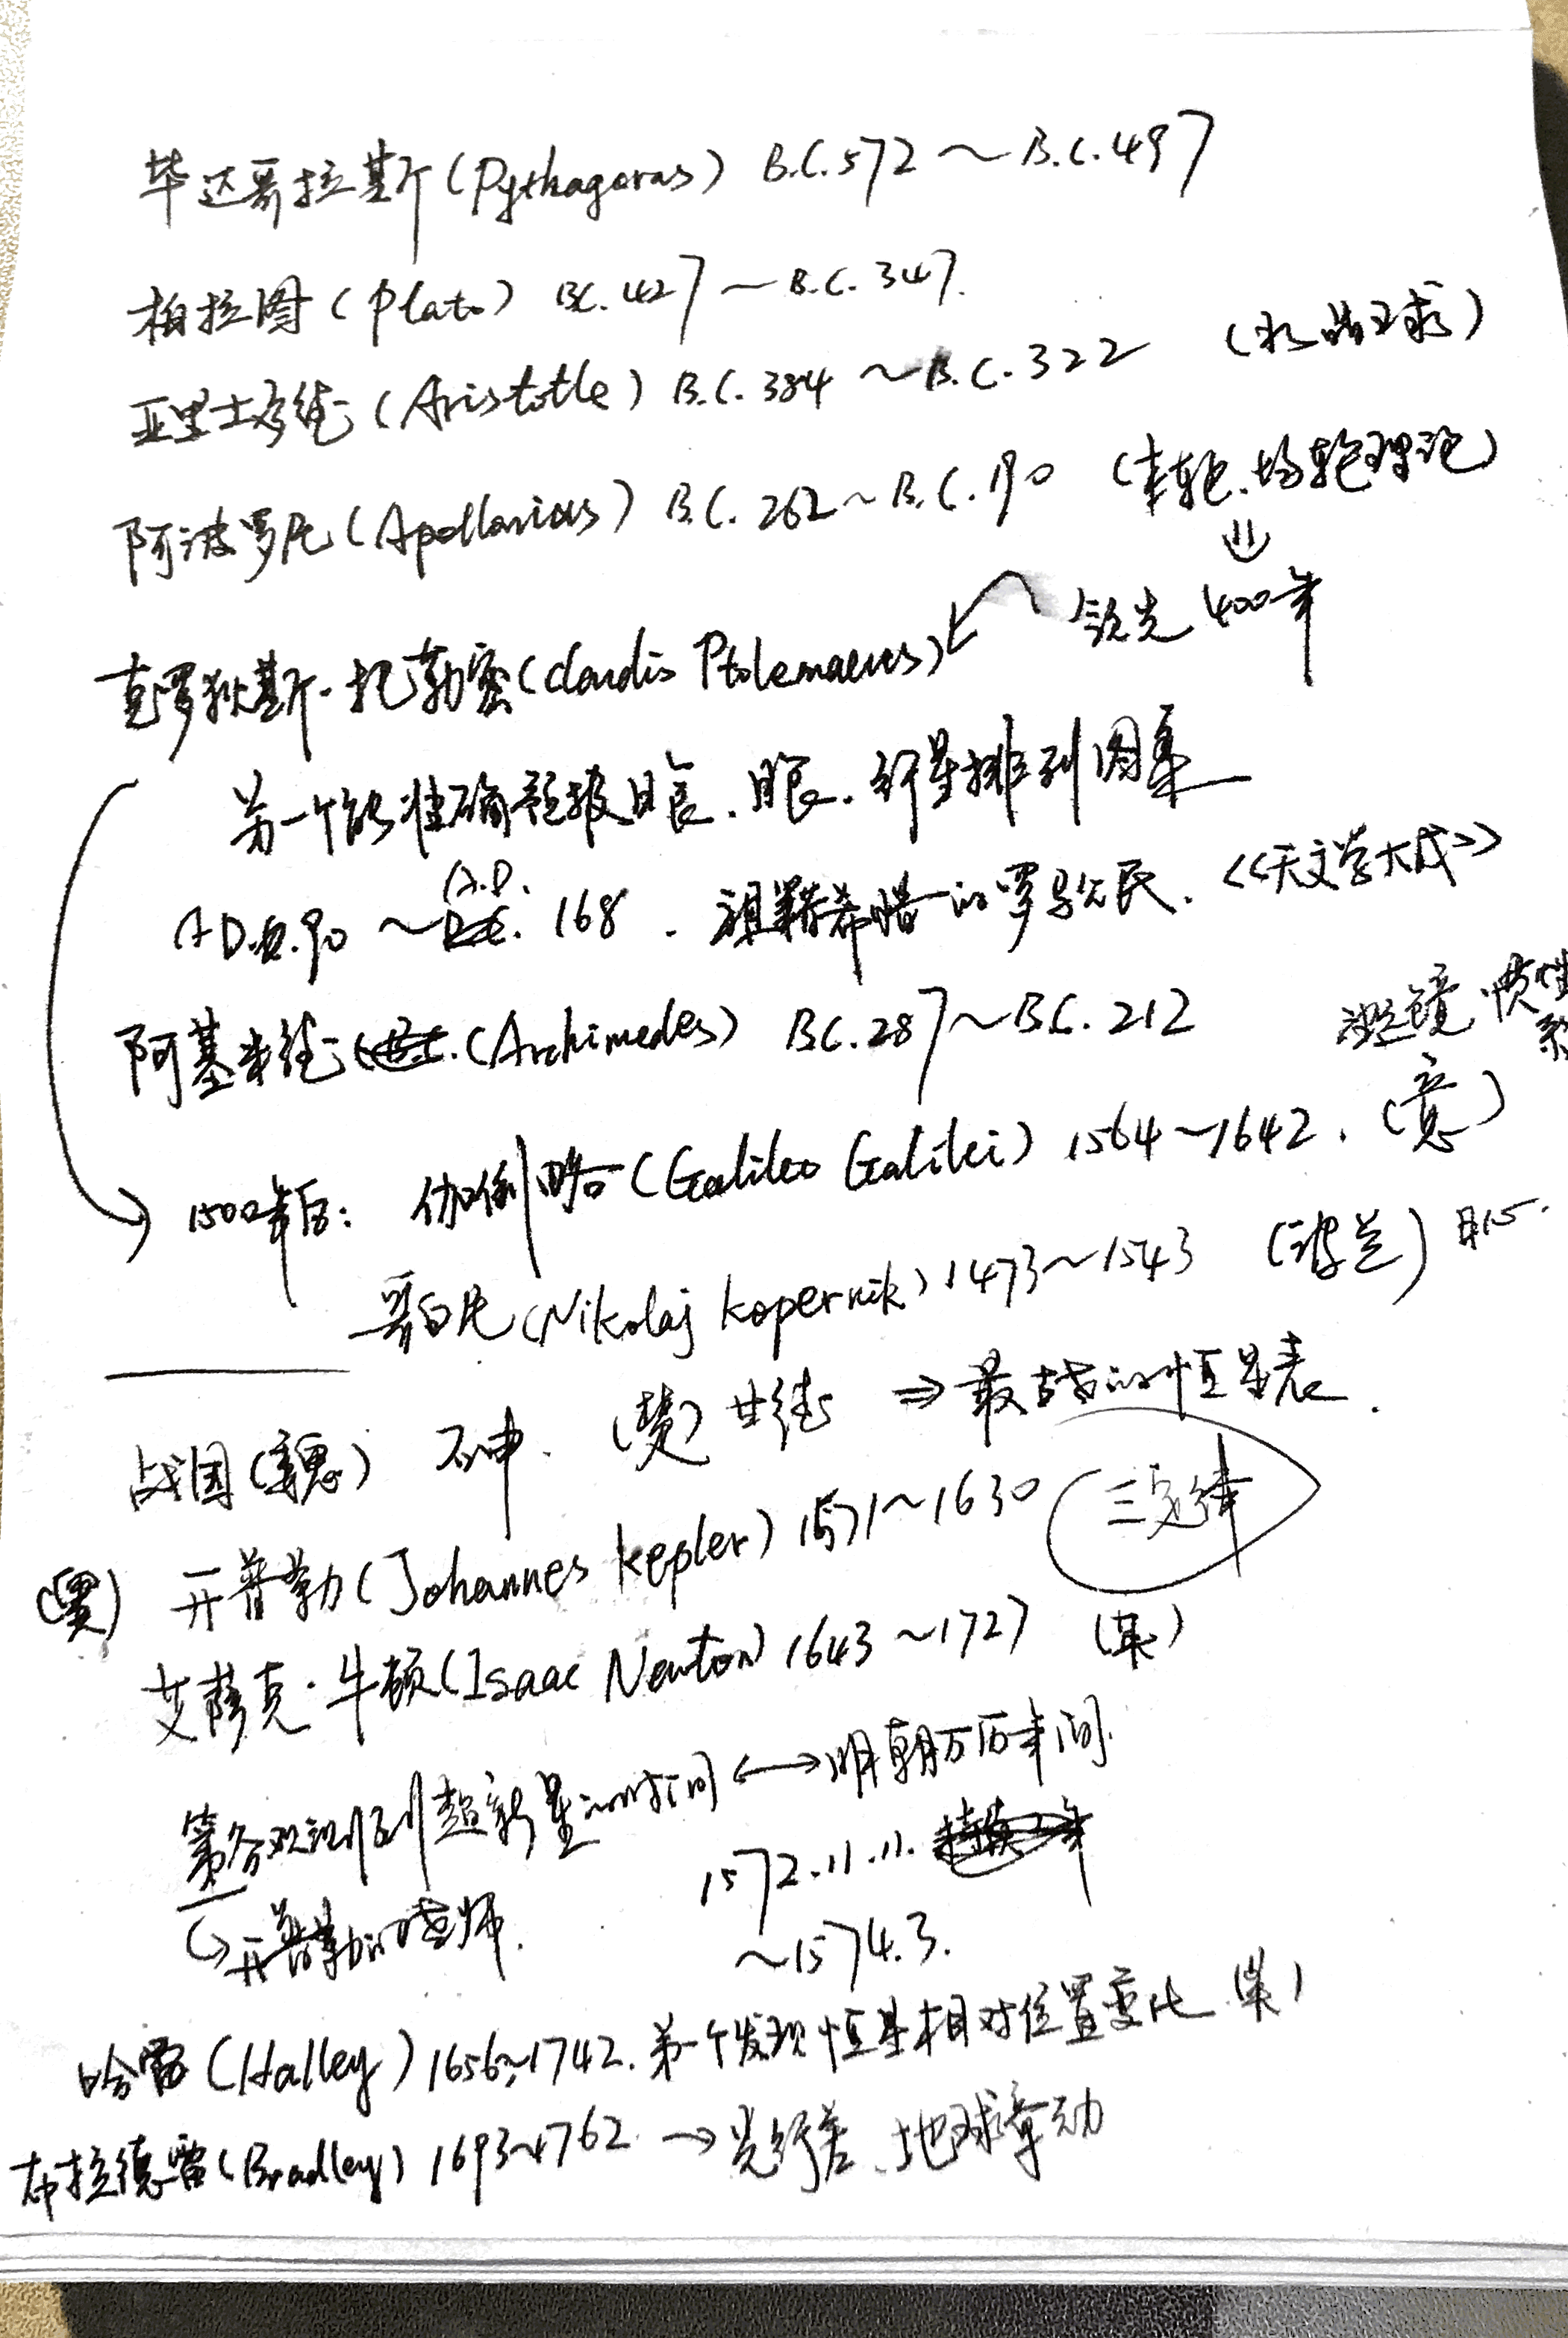 毕达哥拉斯(Pythagoras) B.C.572～B.C.497
柏拉图(Plato) BC.427～B.C.347.
亚里士多德(Aristotle) B.C.384～B.C.322 (水晶球)
阿波罗尼(Apollonius) B.C.262～B.C.190 (本轮.均轮理论)
⇓
克罗狄斯·托勒密(Claudis Ptolemaeus) 领先400年
第一个能准确预报日食、月食.行星排列图集
A.D.
AD.90～168. 祖籍希腊的罗马公民.《天文学大成》
阿基米德(Archimedes) BC.287～B.C.212
望远镜.惯性系
→1500年后: 伽利略(Galileo Galilei) 1564～1642. (意)
哥白尼(Nikolaj Kopernik) 1473～1543 (波兰) 日心.
战国(魏) 石申. (楚)甘德 ⇒最古老的恒星表.
(奥) 开普勒(Johannes Kepler) 1571～1630 三定律
艾萨克·牛顿(Isaac Newton) 1643～1727 (英)
第谷观测到超新星的时间↔明朝万历年间.
1572.11.11.
↪开普勒的老师.
～1574.3.
哈雷(Halley) 1656～1742.第一个发现恒星相对位置变化(英)
布拉德雷(Bradley) 1693～1762.→光行差、地球章动